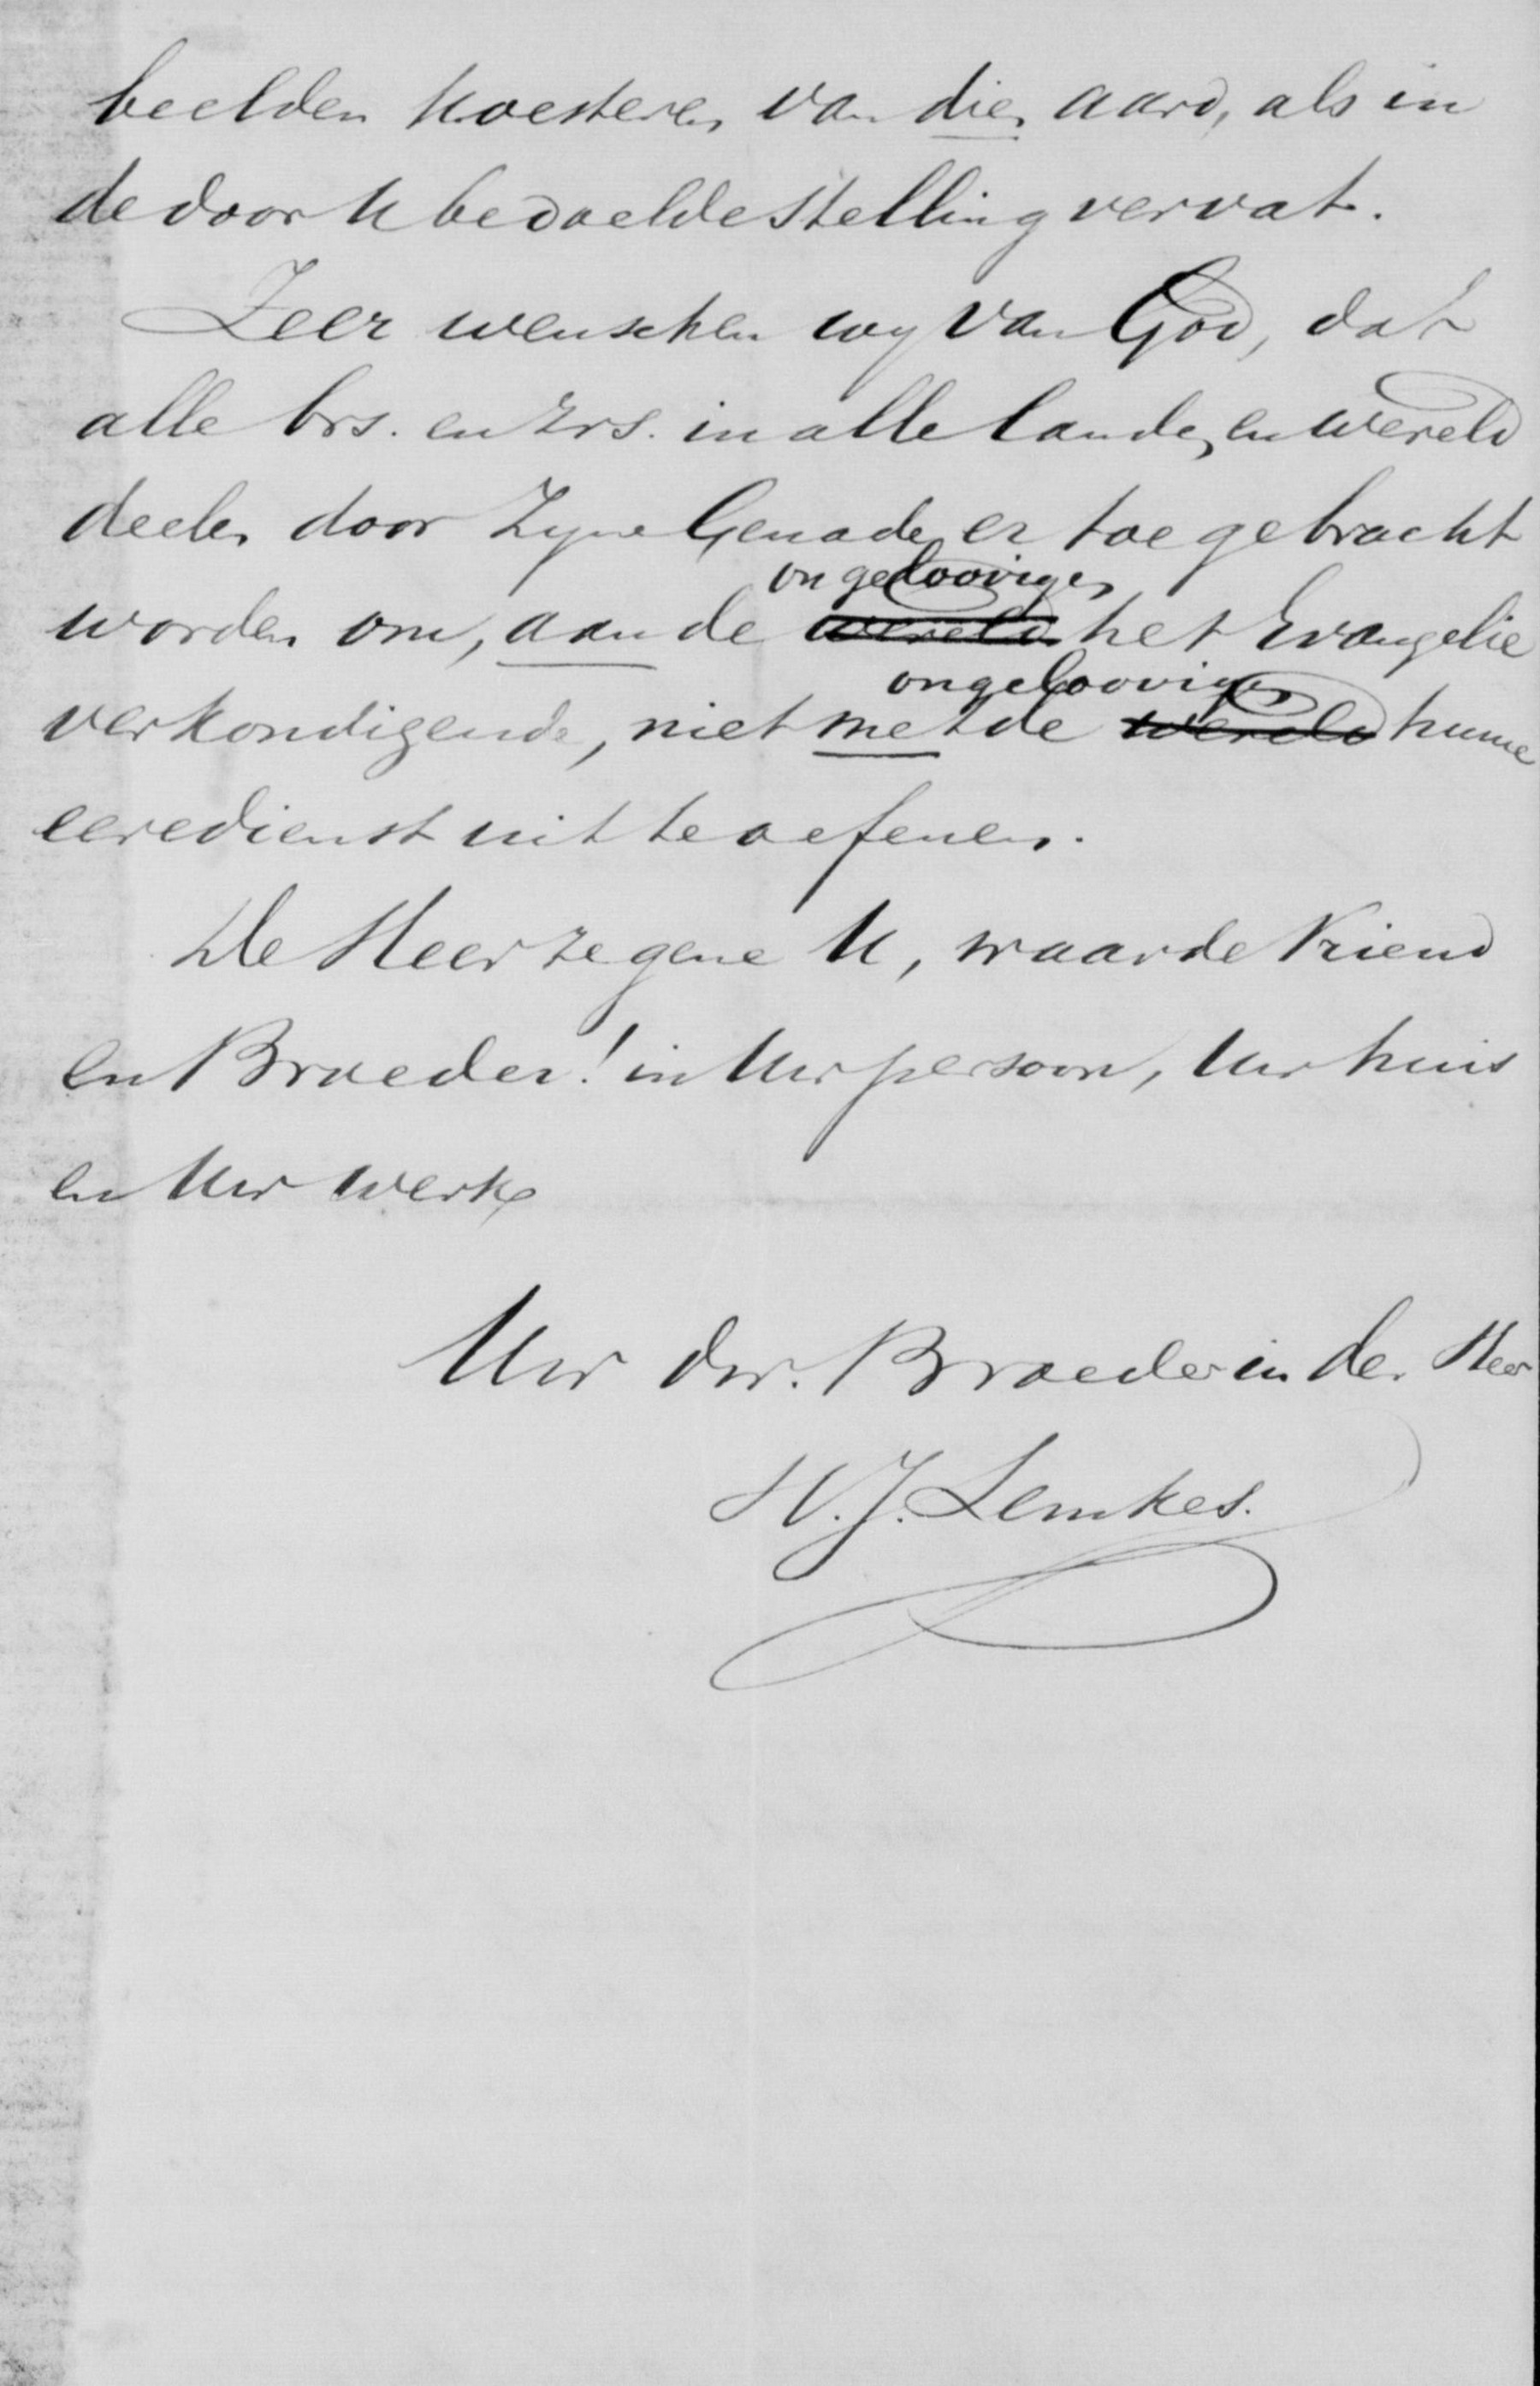 beelden koesteren van dien aard, als in
de door U bedoelde stelling vervat.
Zeer wenschen wy van God, dat
alle brs. en zrs. in alle landen en wereld
deelen door Zyne Genade er toe gebracht
ongeloovigen
worden om, aan de wereld het Evangelie
ongeloovigen
verkondigende, niet met de wereld hunne
eeredienst uit te oefenen.
De Heer zegene U, waarde Vriend
en Broeder! in Uw persoon, Uw huis
en Uw werk
Uw dw. Broeder in den Heer
H.J. Lemkes.